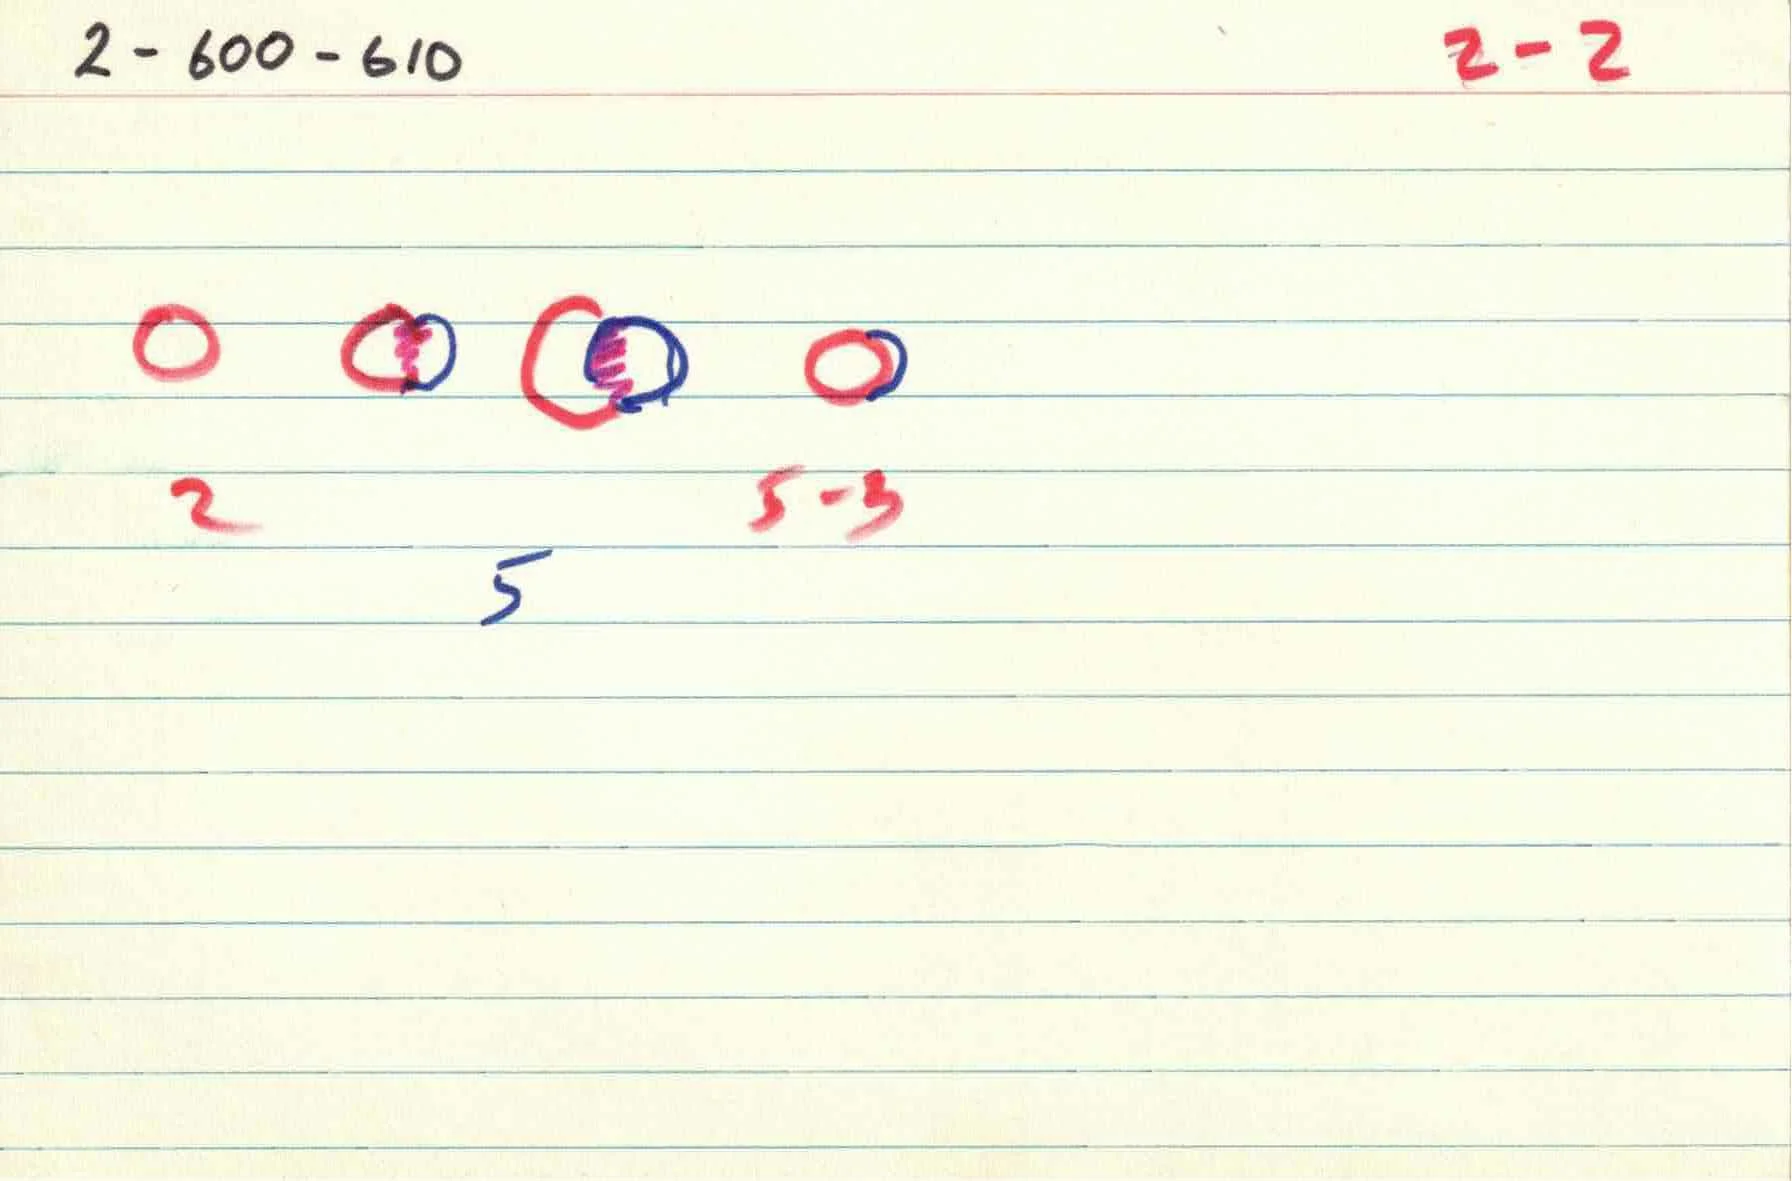 2 - 600 - 610
2 - 2
2
5 - 3
5